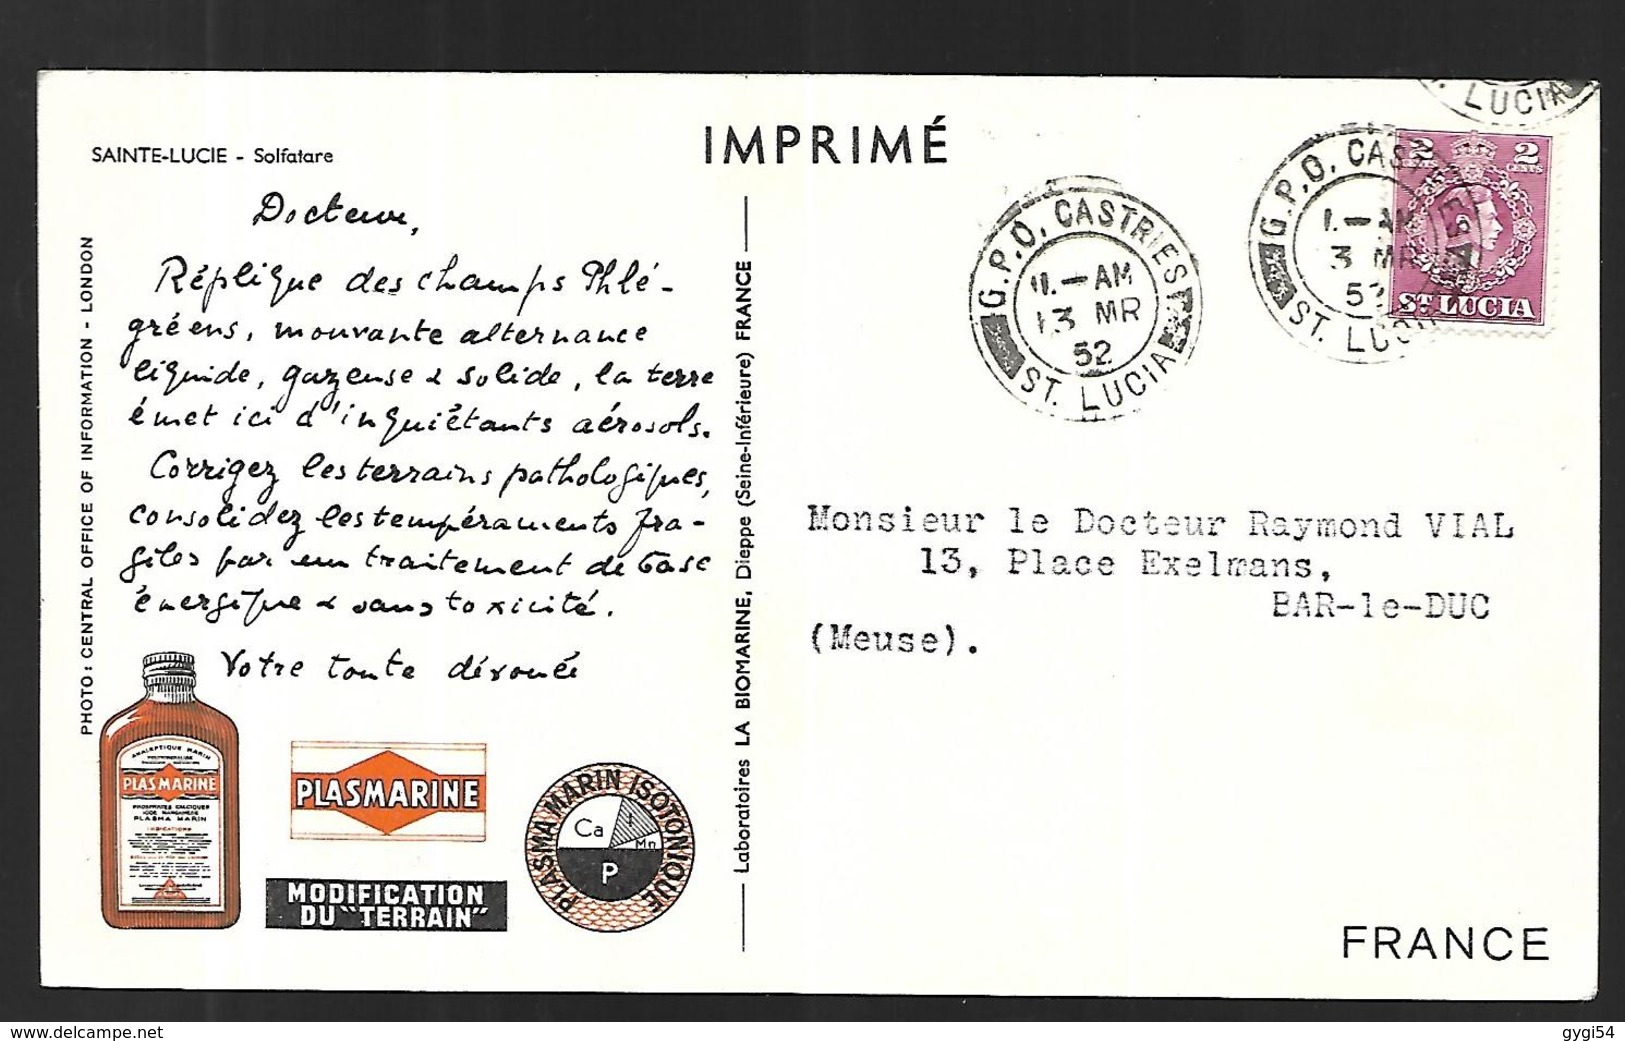 SAINTE-LUCIE - Solfatare
IMPRIMÉ
Docteur,
Réplique des champs Phlé-
gréens, mouvante alternance
liquide, gazeuse & solide, la terre
émet ici d'inquiétants aérosols.
Corrigez les terrains pathologiques,
consolidez les tempéraments fra-
giles par un traitement de base
énergique & sans toxicité.
Votre toute dévouée
PHOTO: CENTRAL OFFICE OF INFORMATION - LONDON
ANALEPTIQUE MARIN
PLASMARINE
PHOSPHATES CALCIQUES
IODE MANGANESE
PLASMA MARIN
INDICATIONS
PLASMARINE
MODIFICATION
DU "TERRAIN"
PLASMA MARIN ISOTONIQUE
Ca
I
Mn
P
Laboratoires LA BIOMARINE, Dieppe (Seine-Inférieure) FRANCE
G.P.O. CASTRIES
11.-AM
13 MR
52
ST. LUCIA
G.P.O. CASTRIES
1.-AM
3 MR
52
ST. LUCIA
ST. LUCIA
2
2
CENTS
ST. LUCIA
Monsieur le Docteur Raymond VIAL
13, Place Exelmans,
BAR-le-DUC
(Meuse).
FRANCE
www.delcampe.net
gygi54